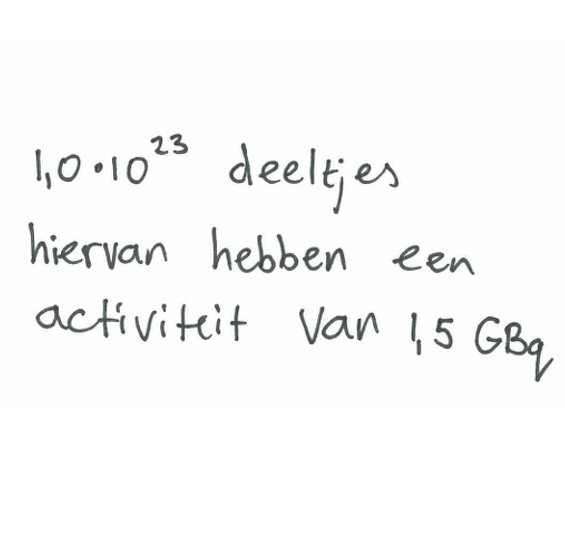 1,0·10²³ deeltjes
hiervan hebben een
activiteit van 1,5 GBq